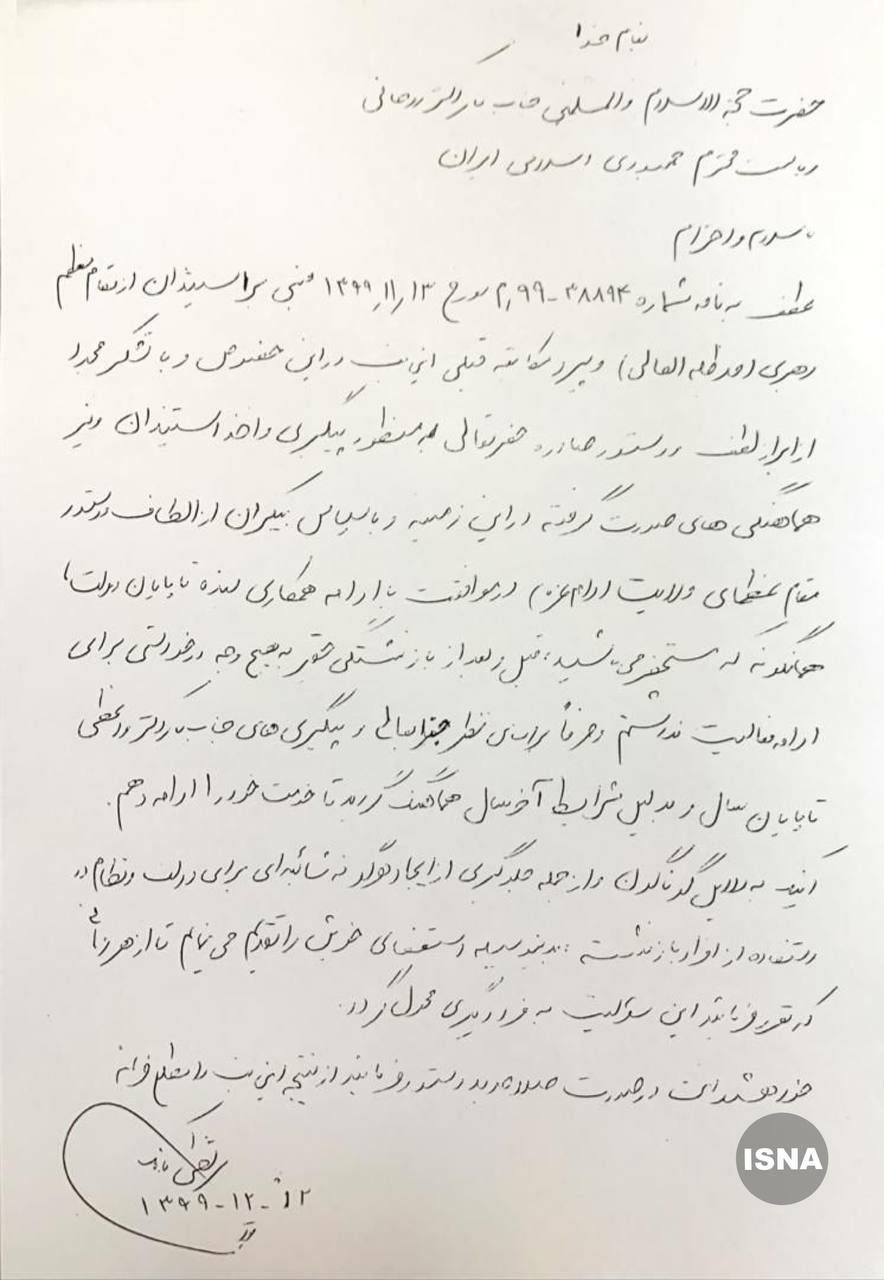 بنام خدا
حضرت حجة الاسلام والمسلمین جناب آقای دکتر روحانی
ریاست محترم جمهوری اسلامی ایران
با سلام و احترام
عطف به نامه شماره ۳۸۸۹۴-م۹۹ مورخ ۱۳۹۹/۱۱/۱۳ مبنی بر استیذان از مقام معظم
رهبری (مد ظله العالی) و پیرو مکاتبه قبلی این‌جانب در این خصوص و با تشکر مجدد
از ابراز لطف و دستور صادره حضرتعالی به منظور پیگیری و اخذ استیذان و نیز
هماهنگی های صورت گرفته در این زمینه و با سپاس بیکران از الطاف و دستور
مقام عظمای ولایت (دام عزه) در موافقت با ادامه همکاری بنده تا پایان دولت،
همانگونه که مستحضر می باشید، قبل و بعد از بازنشستگی حقیر به هیچ وجه درخواستی برای
ادامه فعالیت نداشتم و صرفاً بر اساس نظر جنابعالی و پیگیری های جناب آقای دکتر واعظی
تا پایان سال و بدلیل شرایط آخر سال هماهنگ گردید تا خدمت خود را ادامه دهم.
اینک به دلایل گوناگون و از جمله جلوگیری از ایجاد هرگونه شائبه‌ای برای دولت و نظام در
استفاده از افراد بازنشسته، بدینوسیله استعفای خویش را تقدیم می نمایم تا از هر زمانی
که مقرر فرمایند این مسئولیت به فرد دیگری محول گردد.
خواهشمند است در صورت صلاحدید دستور فرمایند از نتیجه این‌جانب را مطلع فرمایند
۱۳۹۹-۱۲-۱۲
ISNA